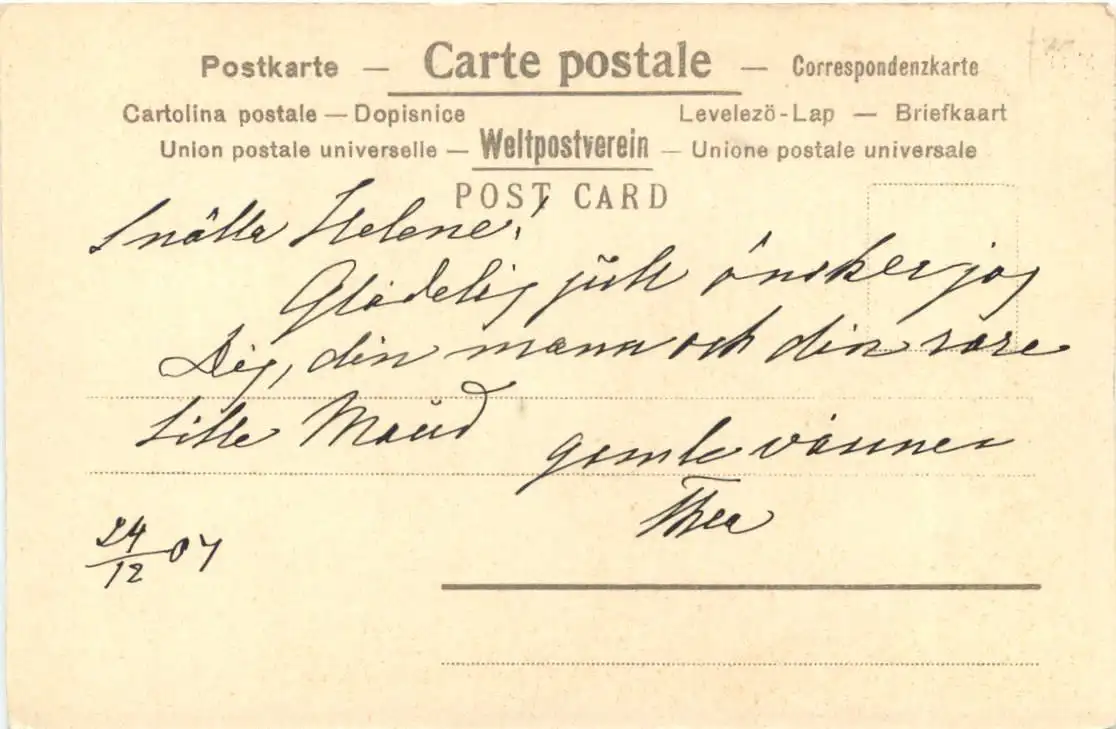 Postkarte — Carte postale — Correspondenzkarte
Cartolina postale — Dopisnice Levelezö-Lap — Briefkaart
Union postale universelle — Weltpostverein — Unione postale universale
POST CARD
Snälla Helene!
Gladelig jūll önsker jag
Dig, din mann och din rare
lille Maūd
gamle vännen
Thea
24/12 07